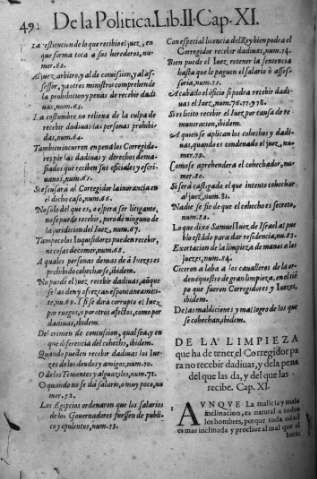 492 De la Politica. Lib. II. Cap. XI.
La restitucion de lo que recibio el juez, en
que forma toca a sus herederos, nu-
mer.
Al juez, arbitro, y al de comission, y al asses-
sor, y a otros ministros comprehende
la prohibicion y penas de recibir dadi
uas, num.
La costumbre no releua de la culpa de
recibir dadiuas las personas prohibi-
das, num.
Tambien incurren en pena los Corregido-
res por las dadiuas y derechos dema-
siados que reciben sus oficiales y escri-
uanos, num.
Si escusara al Corregidor la ignorancia en
el dicho caso, num.
No solo del que es, o espera ser litigante,
no se puede recibir, pero de ninguno de
la juridicion del Juez, num. 67.
Tampoco los Inquisidores pueden recebir,
ni cosas de comer, num. 68.
A quales personas demas de a Juezes es
prohibido cohecharse, ibidem.
No puede el Juez recibir dadiuas, aunque
se las den y ofrezcan espontaneamen-
te, num. Y si se dira corrupto el Juez,
por ruegos, o por otros afectos, como por
dadiuas, num.
Del crimen de concusion, qual sea, y en
que diferencia del cohecho, ibidem.
Quando pueden recibir dadiuas los Jue-
zes de los deudos y amigos, num. 70.
O de los Tenientes y alguaziles, num. 71.
O quando no se da salario, o muy poco, nu
mer. 72.
Los Egipcios ordenaron que los salarios
de los Gouernadores fuessen de publi-
co y opulentos, num. 73.
Con especial licencia del Rey bien podra el
Corregidor recibir dadiuas, num. 74.
Bien puede el Juez, retener la sentencia
hasta que le paguen el salario o asses-
soria, num.
Acabado el oficio si podra recebir dadi
uas el Juez, num. 76. 77. y 78.
Si es licito recibir el Juez por causa de re-
muneracion, ibidem.
A quien se aplican los cohechos y dadi-
uas, quando es condenado el juez, nu-
mer.
Como se aprehendera el cohechador, nu-
mer.
Si sera castigado el que intento cohechar
al juez, num. 81.
Nadie se fie de que el cohecho es secreto,
num. 82.
Lo que dixo Samuel Juez de Israel al pue
blo estando para dar residencia, num.
Exortacion de la limpieza de manos a los
juezes, num. 84.
Ciceron alaba a los caualleros de la or-
den equestre de gran limpieza, en el tie
po que fueron Corregidores y Juezes,
ibidem.
De las maldiciones y mal logro de los que
se cohechan, ibidem.
DE LA LIMPIEZA
que ha de tener el Corregidor pa
ra no recebir dadiuas, y de la pena
del que las da, y del que las
recibe. Cap. XI.
AVNQVE La malicia y mala
inclinacion, es natural a todos
los hombres, porque toda edad
es mas inclinada y procliue al mal que al
bueno